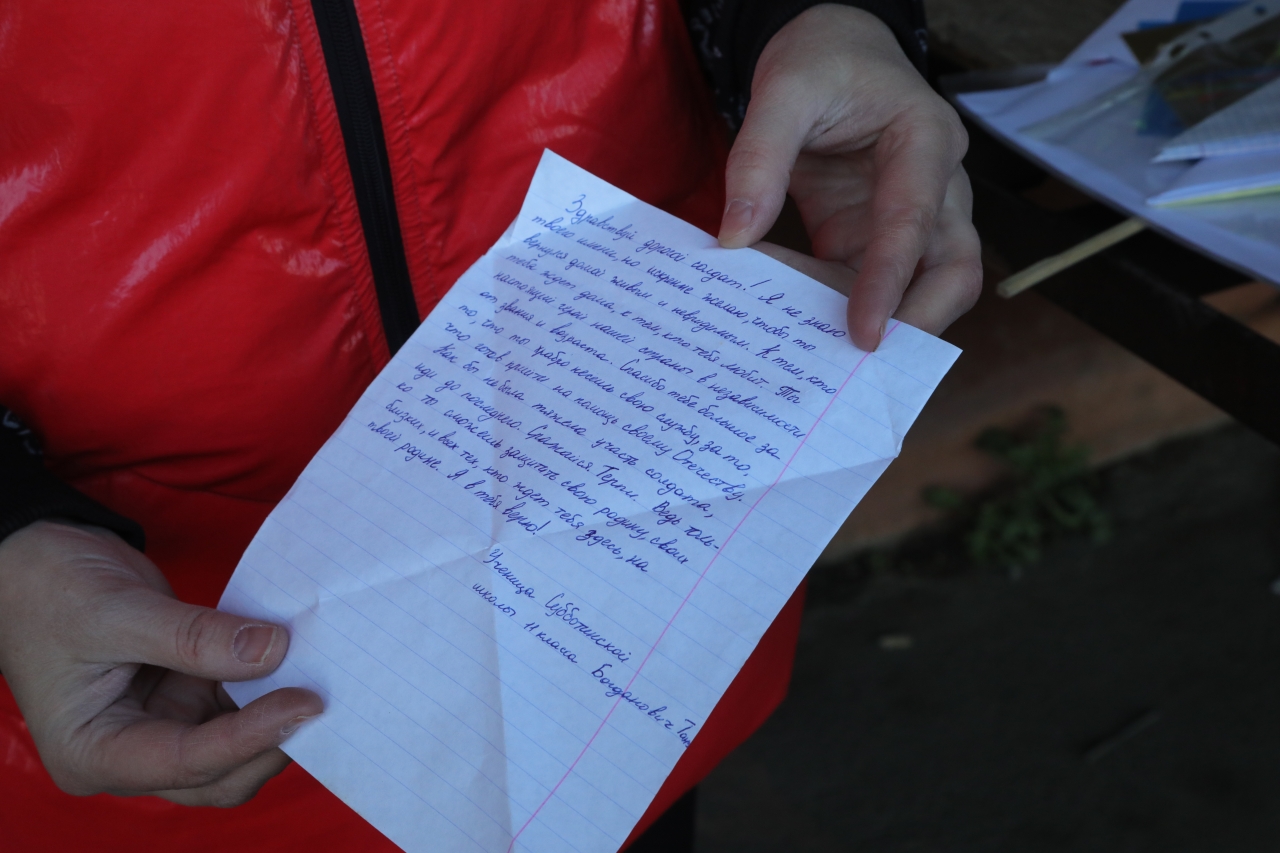 Здравствуй дорогой солдат! Я не знаю
твоего имени, но искренне желаю, чтобы ты
вернулся домой живым и невредимым. К тем, кто
тебя ждет дома, к тем, кто тебя любит. Ты
настоящий герой нашей страны в независимости
от звания и возраста. Спасибо тебе большое за
то, что ты храбро несешь свою службу, за то,
что готов прийти на помощь своему Отечеству.
Как бы не была тяжела участь солдата,
иди до последнего. Сражайся. Терпи. Ведь толь-
ко ты сможешь защитить свою родину, своих
близких, и всех тех, кто ждет тебя здесь, на
твоей родине. Я в тебя верю!
Ученица Субботинской
школы 11 класса Богданович